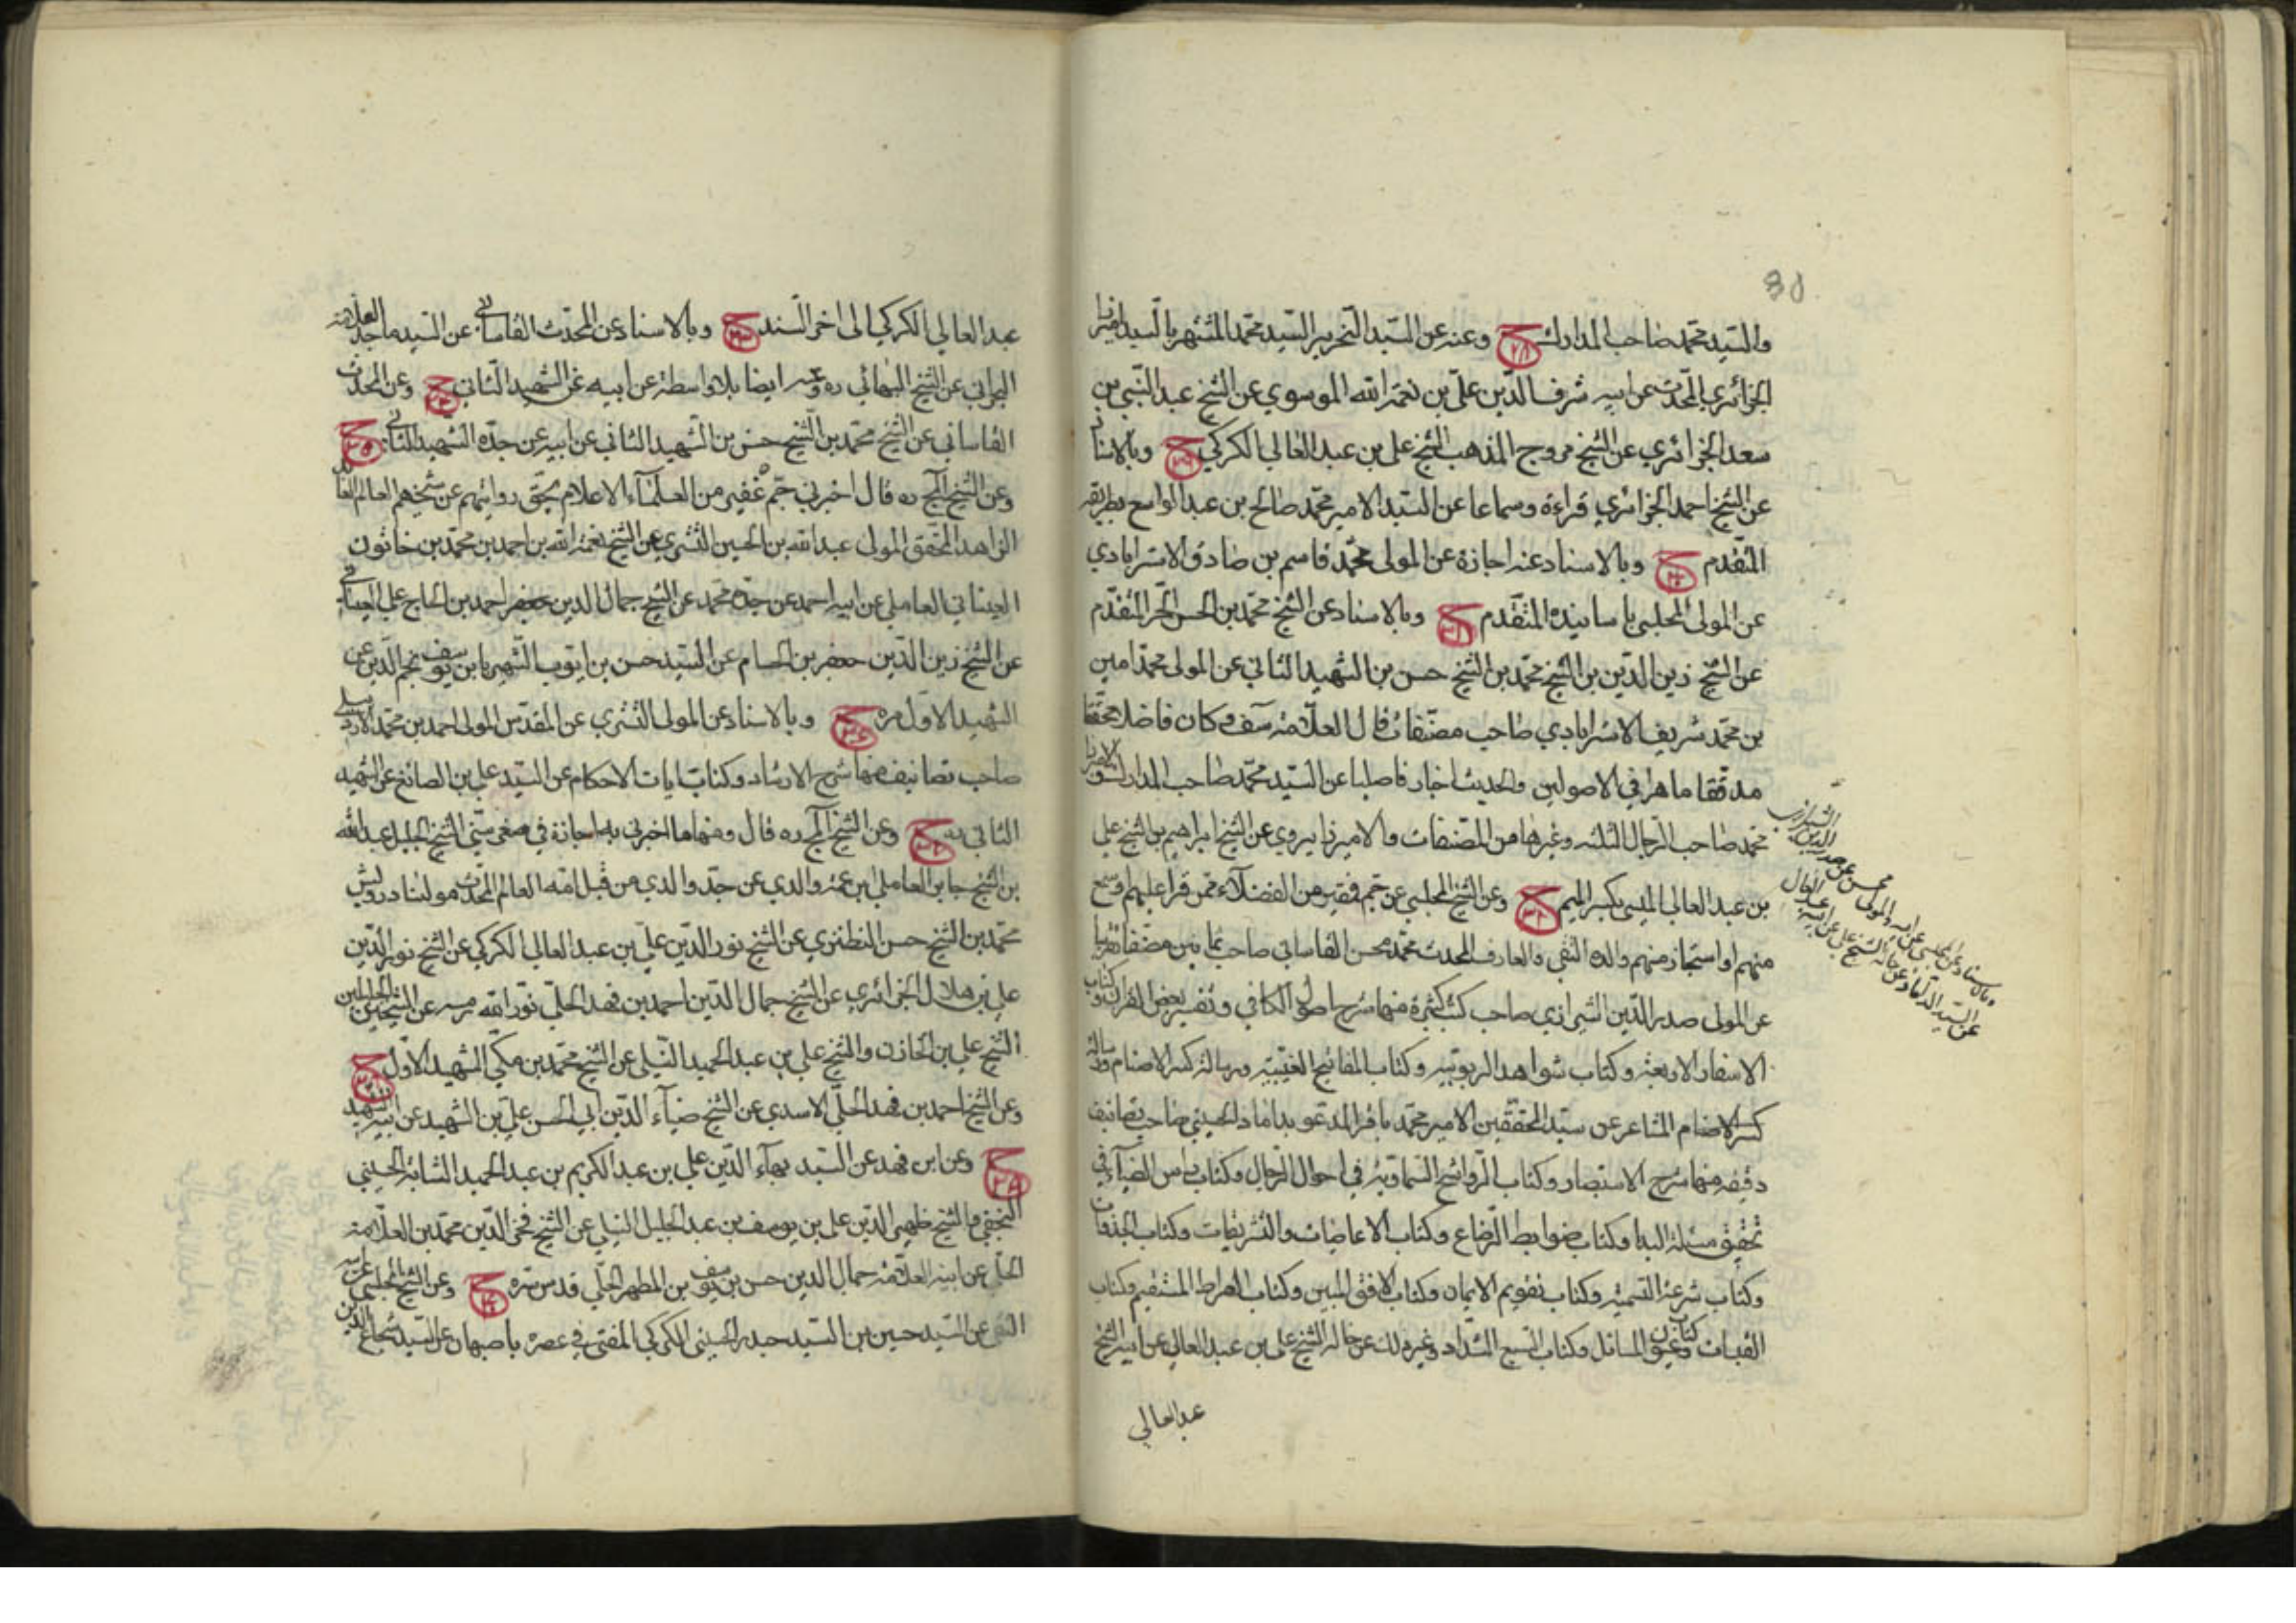 والسيد محمد صاحب المدارك ح ٢٨ وعنه عن السيد النحرير السيد محمد المشتهر بالسيد ميرزا
الجزائري المحدث عن ابيه شرف الدين علي بن نعمة الله الموسوي عن الشيخ عبد النبي بن
سعد الجزائري عن الشيخ مروج المذهب الشيخ علي بن عبد العالي الكركي ح ٢٩ وبالاسناد
عن الشيخ احمد الجزائري قراءة وسماعا عن السيد الامير محمد صالح بن عبد الواسع بطريقه
المتقدم ح ٣٠ وبالاسناد عنه اجازة عن المولى محمد قاسم بن صادق الاسترابادي
عن المولى المجلسي باسانيده المتقدم ح ٣١ وبالاسناد عن الشيخ محمد بن الحسن الحر المتقدم
عن الشيخ زين الدين بن الشيخ محمد بن الشيخ حسن بن الشهيد الثاني عن المولى محمد امين
بن محمد شريف الاسترابادي صاحب مصنفات قال العلامة وكان فاضلا محققا
مدققا ماهرا في الاصولين والحديث اخباريا صلبا عن السيد محمد صاحب المدارك والاميرزا
محمد صاحب الرجال الثلثه وغيرها من المصنفات والاميرزا يروي عن الشيخ ابراهيم بن الشيخ علي
بن عبد العالي الميسي بكسر الميم ح ٣٢ وعن الشيخ المجلسي عن جم فقير من الفضلاء ممن قرا عليهم وسمع
منهم او استجاز منهم والده التقي والعارف المحدث محمد محسن القاساني صاحب ثمانين مصنفا تقريبا
عن المولى صدر الدين الشيرازي صاحب كتب كثيرة منها شرح اصول الكافي وتفسير بعض القران وكتاب
الاسفار الاربعة وكتاب شواهد الربوبيه وكتاب المفاتيح الغيبيه ورسالة كسر الاصنام ورسالة
كسر الاصنام المشاعر عن سيد المحققين الامير محمد باقر المدعو بداماد الحسيني صاحب تصانيف
دقيقه منها شرح الاستبصار وكتاب الرواشح السماوية في احوال الرجال وكتاب نبراس الضياء في
تحقيق مسئلة البدا وكتاب ضوابط الرضاع وكتاب الاعاضات والتشريقات وكتاب الجذوات
وكتاب شرعة التسمية وكتاب تقويم الايمان وكتاب الافق المبين وكتاب الصراط المستقيم وكتاب
القبسات وكتاب عيون المسائل وكتاب السبع الشداد وغير ذلك عن خاله الشيخ علي بن عبد العالي عن ابيه الشيخ
عبد العالي
وبالاسناد عن المجلسي عن ابيه والمولى محسن عن صدر الدين الشيرازي
عن السيد الداماد عن خاله الشيخ علي عن ابيه عبد العالي
عبد العالي الكركي الى اخر السند ح ٣٣ وبالاسناد عن المحدث القاساني عن السيد ماجد العلامة
البحراني عن الشيخ البهائي ره وعنه ايضا بلا واسطة عن ابيه عن الشهيد الثاني ح ٣٤ وعن المحدث
القاساني عن الشيخ محمد بن الشيخ حسن بن الشهيد الثاني عن ابيه عن جده الشهيد الثاني ح ٣٥
وعن الشيخ المج ره قال اخبرني جم غفير من العلماء الاعلام بحق روايتهم عن شيخهم العالم العابد
الزاهد المحقق المولى عبد الله بن الحسين التشتري عن الشيخ نعمة الله بن احمد بن محمد بن خاتون
العيناثي العاملي عن ابيه احمد عن جده محمد عن الشيخ جمال الدين جعفر احمد بن الحاج علي العيناثي
عن الشيخ زين الدين جعفر بن الحسام عن السيد حسن بن ايوب الشهير بابن يوسف نجم الدين عن
الشهيد الاول مره ح ٣٦ وبالاسناد عن المولى التشتري عن المقدس المولى احمد بن محمد الاردبيلي
صاحب تصانيف منها شرح الارشاد وكتاب ايات الاحكام عن السيد علي بن الصائغ عن الشهيد
الثاني ره ح ٣٧ وعن الشيخ المج ره قال ومنها ما اخبرني به اجازة في صغر سني الشيخ الجليل عبد الله
بن الشيخ جابر العاملي ابن عمة والدي عن جد والدي من قبل امه العالم المحدث مولنا درويش
محمد بن الشيخ حسن النطنزي عن الشيخ نور الدين علي بن عبد العالي الكركي عن الشيخ نور الدين
علي بن هلال الجزائري عن الشيخ جمال الدين احمد بن فهد الحلي نور الله مرسه عن الشيخين الجليلين
الشيخ علي بن الخازن والشيخ علي بن عبد الحميد النيلي عن الشيخ محمد بن مكي الشهيد الاول ح
وعن الشيخ احمد بن فهد الحلي الاسدي عن الشيخ ضياء الدين ابي الحسن علي بن الشهيد عن ابيه الشهيد
ح وعن ابن فهد عن السيد بهاء الدين علي بن عبد الكريم بن عبد الحميد النسابة الحسيني
النجفي والشيخ ظهير الدين علي بن يوسف بن عبد الجليل النيلي عن الشيخ فخر الدين محمد بن العلامة
الحلي عن ابيه العلامة جمال الدين حسن بن يوسف بن المطهر الحلي قدس سره ح وعن الشيخ المجلسي عن ابيه
التقي عن السيد حسين بن السيد حيدر الحسيني الكركي المفتي في عصره باصبهان عن السيد شجاع الدين